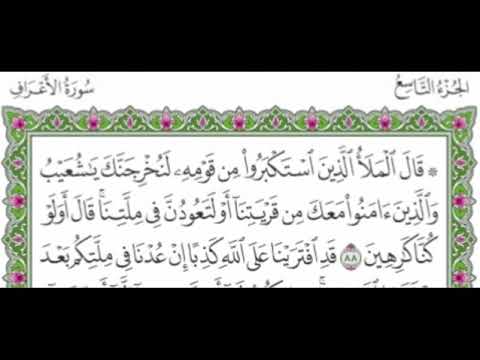 الجزء التاسع
سورة الأعراف
۞ قَالَ ٱلْمَلَأُ ٱلَّذِينَ ٱسْتَكْبَرُوا۟ مِن قَوْمِهِۦ لَنُخْرِجَنَّكَ يَٰشُعَيْبُ
وَٱلَّذِينَ ءَامَنُوا۟ مَعَكَ مِن قَرْيَتِنَآ أَوْ لَتَعُودُنَّ فِى مِلَّتِنَا ۚ قَالَ أَوَلَوْ
كُنَّا كَٰرِهِينَ ٨٨ قَدِ ٱفْتَرَيْنَا عَلَى ٱللَّهِ كَذِبًا إِنْ عُدْنَا فِى مِلَّتِكُم بَعْدَ